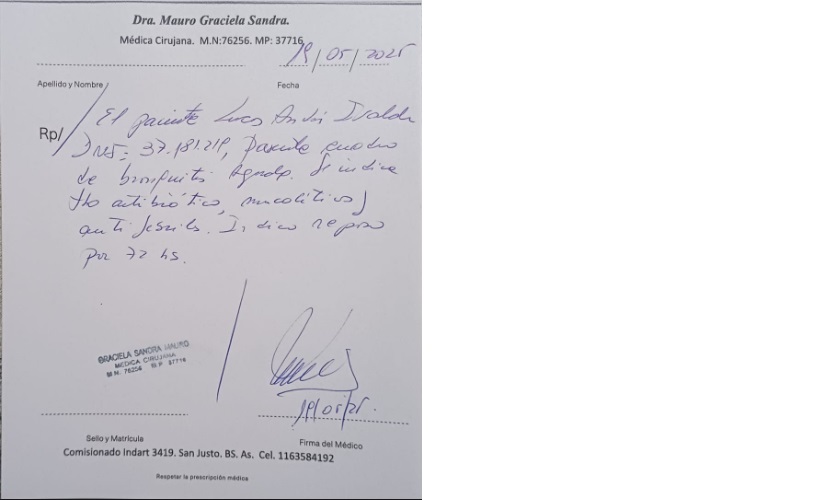 Dra. Mauro Graciela Sandra.
Médica Cirujana. M.N:76256. MP: 37716
19/05/2025
Apellido y Nombre
Fecha
Rp/
El paciente Lucas Andrés
DNI: 37.181.219, Presenta cuadro
de bronquitis Aguda. Se indica
tto antibiótico, mucolítico y
anti Indico reposo
por 72 hs.
GRACIELA SANDRA MAURO
MEDICA CIRUJANA
M N. 76256 M P 37716
19/05/25.
Sello y Matricula
Firma del Médico
Comisionado Indart 3419. San Justo. BS. As. Cel. 1163584192
Respetar la prescripción médica